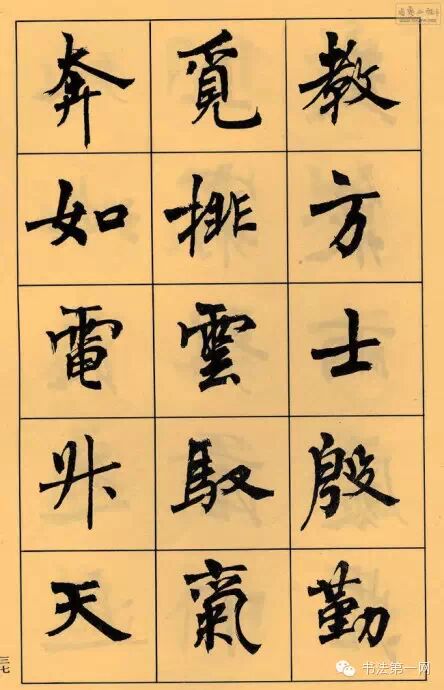 教方士殷勤
覓排雲馭氣
奔如電升天
三七
书法第一网